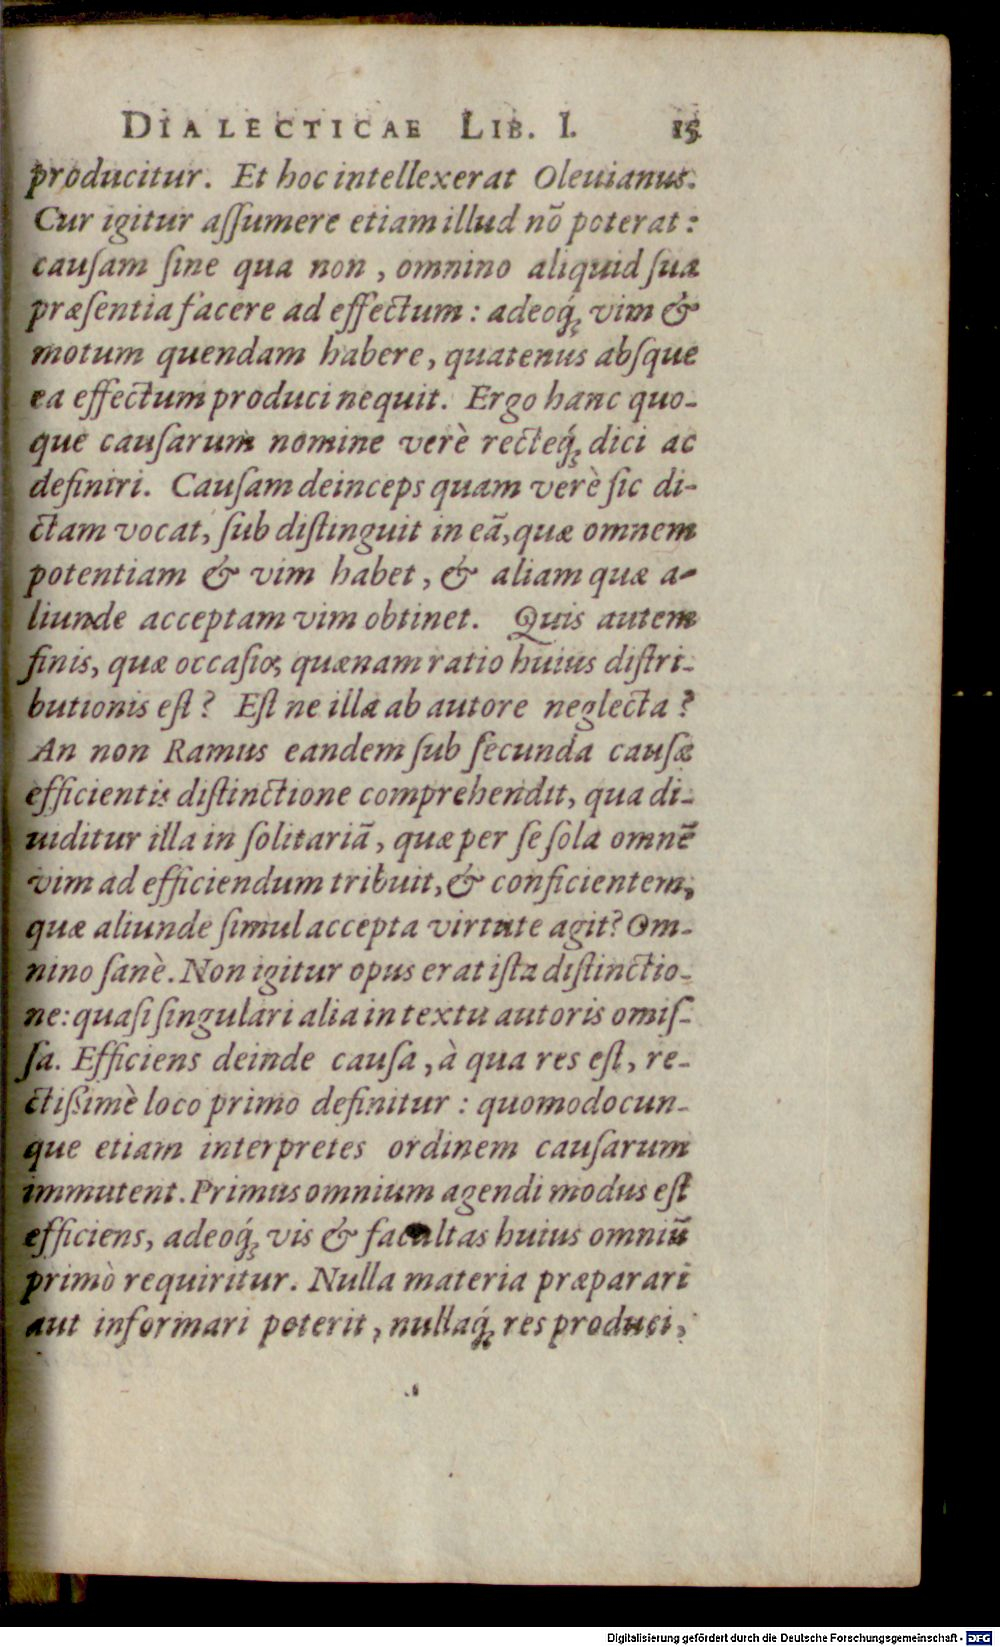 DIALECTICAE LIB. I. 15
producitur. Et hoc intellexerat Oleuianus.
Cur igitur aſſumere etiam illud nõ poterat:
cauſam ſine qua non, omnino aliquid ſua
præſentia facere ad effectum: adeoq́; vim &
motum quendam habere, quatenus abſque
ea effectum produci nequit. Ergo hanc quo-
que cauſarum nomine verè recteq́; dici ac
definiri. Cauſam deinceps quam verè ſic di-
ctam vocat, ſub diſtinguit in eã, quæ omnem
potentiam & vim habet, & aliam quæ a-
liunde acceptam vim obtinet. Quis autem
finis, quæ occaſio, quænam ratio huius diſtri-
butionis eſt? Eſt ne illa ab autore neglecta?
An non Ramus eandem ſub ſecunda cauſæ
efficientis diſtinctione comprehendit, qua di-
uiditur illa in ſolitariã, quæ per ſe ſola omnẽ
vim ad efficiendum tribuit, & conficientem,
quæ aliunde ſimul accepta virtute agit? Om-
nino ſanè. Non igitur opus erat iſta diſtinctio-
ne: quaſi ſingulari alia in textu autoris omiſ-
ſa. Efficiens deinde cauſa, à qua res eſt, re-
ctißimè loco primo definitur: quomodocun-
que etiam interpretes ordinem cauſarum
immutent. Primus omnium agendi modus eſt
efficiens, adeoq́; vis & facultas huius omniũ
primò requiritur. Nulla materia præparari
aut informari poterit, nullaq́; res produci,
Digitalisierung gefördert durch die Deutsche Forschungsgemeinschaft - DFG